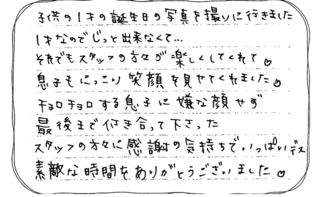 子供の1才の誕生日の写真を撮りに行きました
1才なのでじっと出来なくて…
それでもスタッフの方々が楽しくしてくれて♡
息子もにっこり笑顔を見せてくれました♡
チョロチョロする息子に嫌な顔せず
最後まで付き合って下さった
スタッフの方々に感謝の気持ちでいっぱいデス
素敵な時間をありがとうございました♡